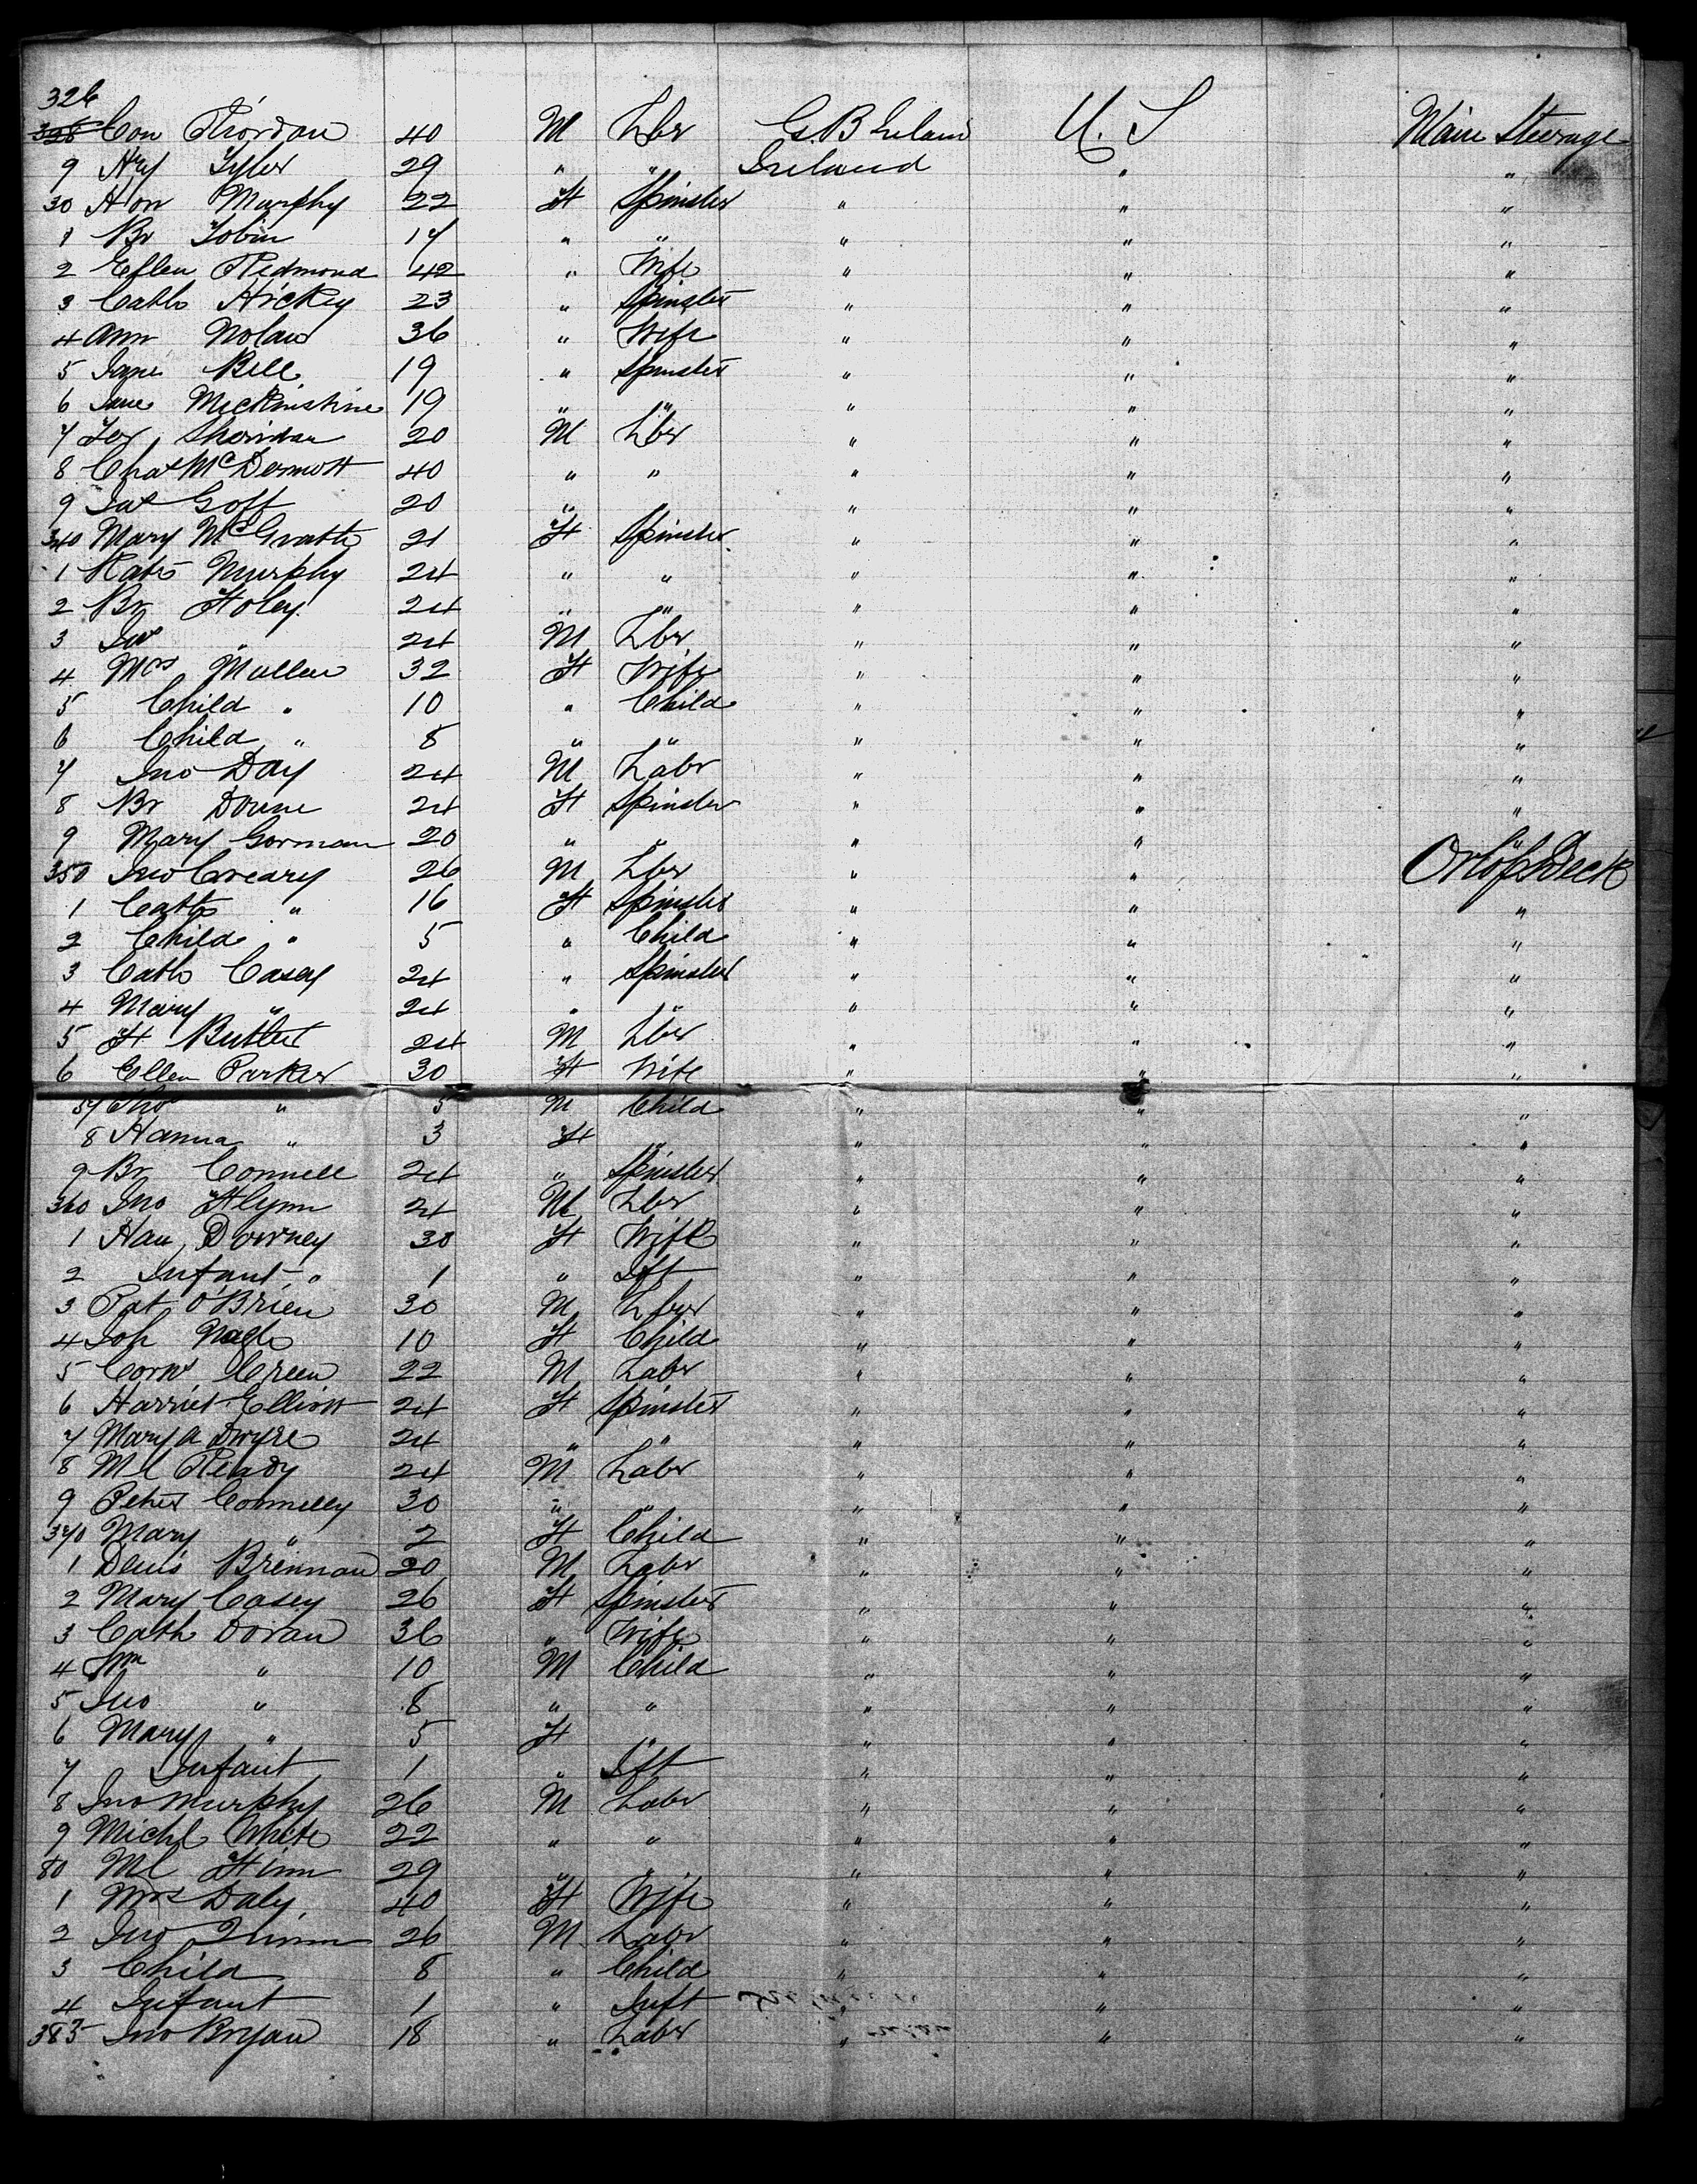 326
328 Con Riordan 40 M Lbr G.B Ireland U. S Main Steerage
9 Hy Tyler 29 " " Ireland " "
30 Hon Murphy 22 F Spinster " " "
1 Br Tobin 17 " " " " "
2 Ellen Redmond 42 " Wife " " "
3 Cath Hickey 23 " Spinster " " "
4 Ann Nolan 36 " Wife " " "
5 Jane Bell 19 " Spinster " " "
6 Jane McKinstine 19 " " " " "
7 Ter Sheridan 20 M Lbr " " "
8 Chas McDermott 40 " " " " "
9 Jas Goff 20 " " " "
340 Mary McGrath 21 F Spinster " " "
1 Kate Murphy 24 " " " " "
2 Br Foley 24 " " " " "
3 Jas " 24 M Lbr " " "
4 Mrs Mullen 32 F Wife " " "
5 Child " 10 " Child " " "
6 Child " 8 " " " " "
7 Jno Day 24 M Labr " " "
8 Br Downe 24 F Spinster " " "
9 Mary Gorman 20 " " " " "
350 Jno Creary 26 M Lbr " " Orlop Deck
1 Cath " 16 F Spinster " " "
2 Child " 5 " Child " " "
3 Cath Casey 24 " Spinster " " "
4 Mary " 24 " " " " "
5 F Butler 24 M Lbr " " "
6 Ellen Parker 30 F Wife " " "
57 Tho " 5 M Child " " "
8 Hanna " 3 F " " " "
9 Br Connell 24 " Spinster " " "
360 Jno Flynn 24 M Lbr " " "
1 Han Downey 30 F Wife " " "
2 Infant " 1 " Ift " " "
3 Pat O'Brien 30 M Lbr " " "
4 Joh Nagle 10 F Child " " "
5 Corns Green 22 M Labr " " "
6 Harriet Elliott 24 F Spinster " " "
7 Mary A Dwyre 24 " " " " "
8 Ml Ready 24 M Labr " " "
9 Peter Connelly 30 " " " " "
370 Mary " 2 F Child " " "
1 Denis Brennan 20 M Labr " " "
2 Mary Casey 26 F Spinster " " "
3 Cath Doran 36 " Wife " " "
4 Wm " 10 M Child " " "
5 Jno " 8 " " " " "
6 Mary " 5 F " " " "
7 Infant 1 " Ift " " "
8 Jno Murphy 26 M Labr " " "
9 Michl White 22 " " " " "
80 Ml Finn 29 " " " " "
1 Mrs Daly 40 F Wife " " "
2 Jno Quinn 26 M Labr " " "
3 Child 8 " Child " " "
4 Infant 1 " Inft " " "
385 Jno Bryan 18 " Labr " " "